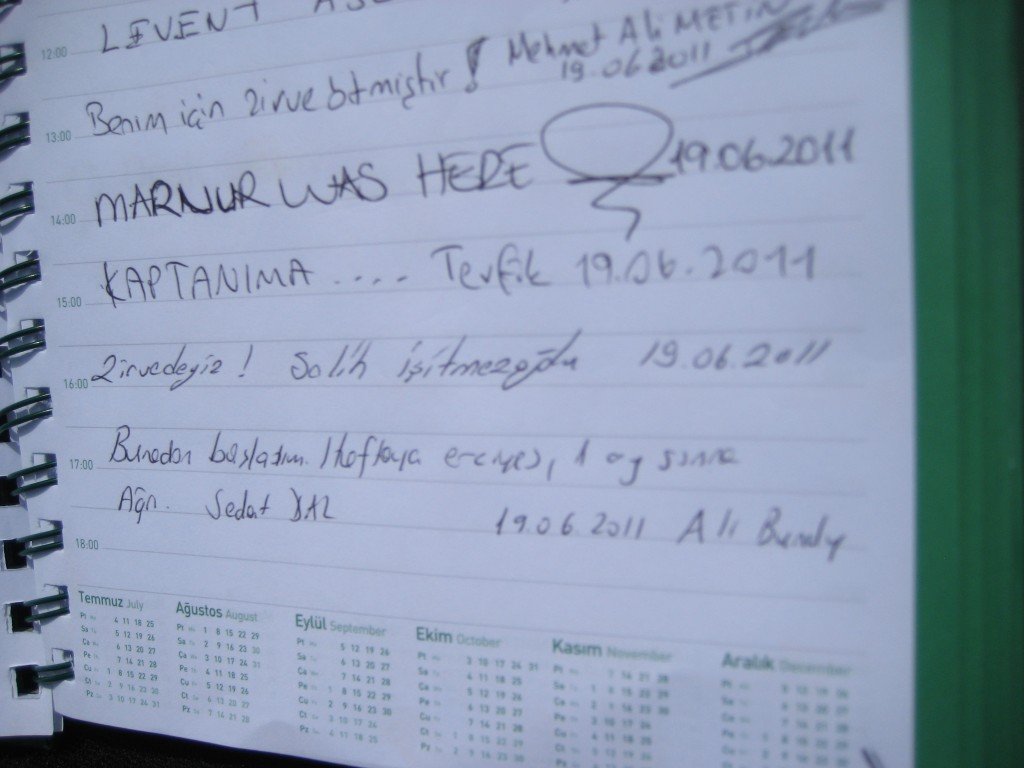 12:00 LEVENT
Benim için zirve bitmiştir! Mehmet Ali METİN
19.06.2011
13:00
MARNUR WAS HERE 19.06.2011
14:00
KAPTANIMA .... Tevfik 19.06.2011
15:00
Zirvedeyiz! Salih işitmezoğlu 19.06.2011
16:00
Buradan başladım. 1 haftaya erciyes, 1 ay sonra
17:00
Ağrı. Sedat 19.06.2011 Ali
18:00
Temmuz July Ağustos August Eylül September Ekim October Kasım November Aralık December
4 11 18 25 1 8 15 22 29 5 12 19 26 3 10 17 24 31 7 14 21 28
5 12 19 26 2 9 16 23 30 6 13 20 27 4 11 18 25 1 8 15 22 29
6 13 20 27 3 10 17 24 31 7 14 21 28 5 12 19 26 2 9 16 23 30
7 14 21 28 4 11 18 25 1 8 15 22 29 6 13 20 27 3 10 17 24
1 8 15 22 29 5 12 19 26 2 9 16 23 30 7 14 21 28 4 11 18 25
2 9 16 23 30 6 13 20 27 3 10 17 24 1 8 15 22 29 5 12 19 26
3 10 17 24 31 7 14 21 28 4 11 18 25 2 9 16 23 30